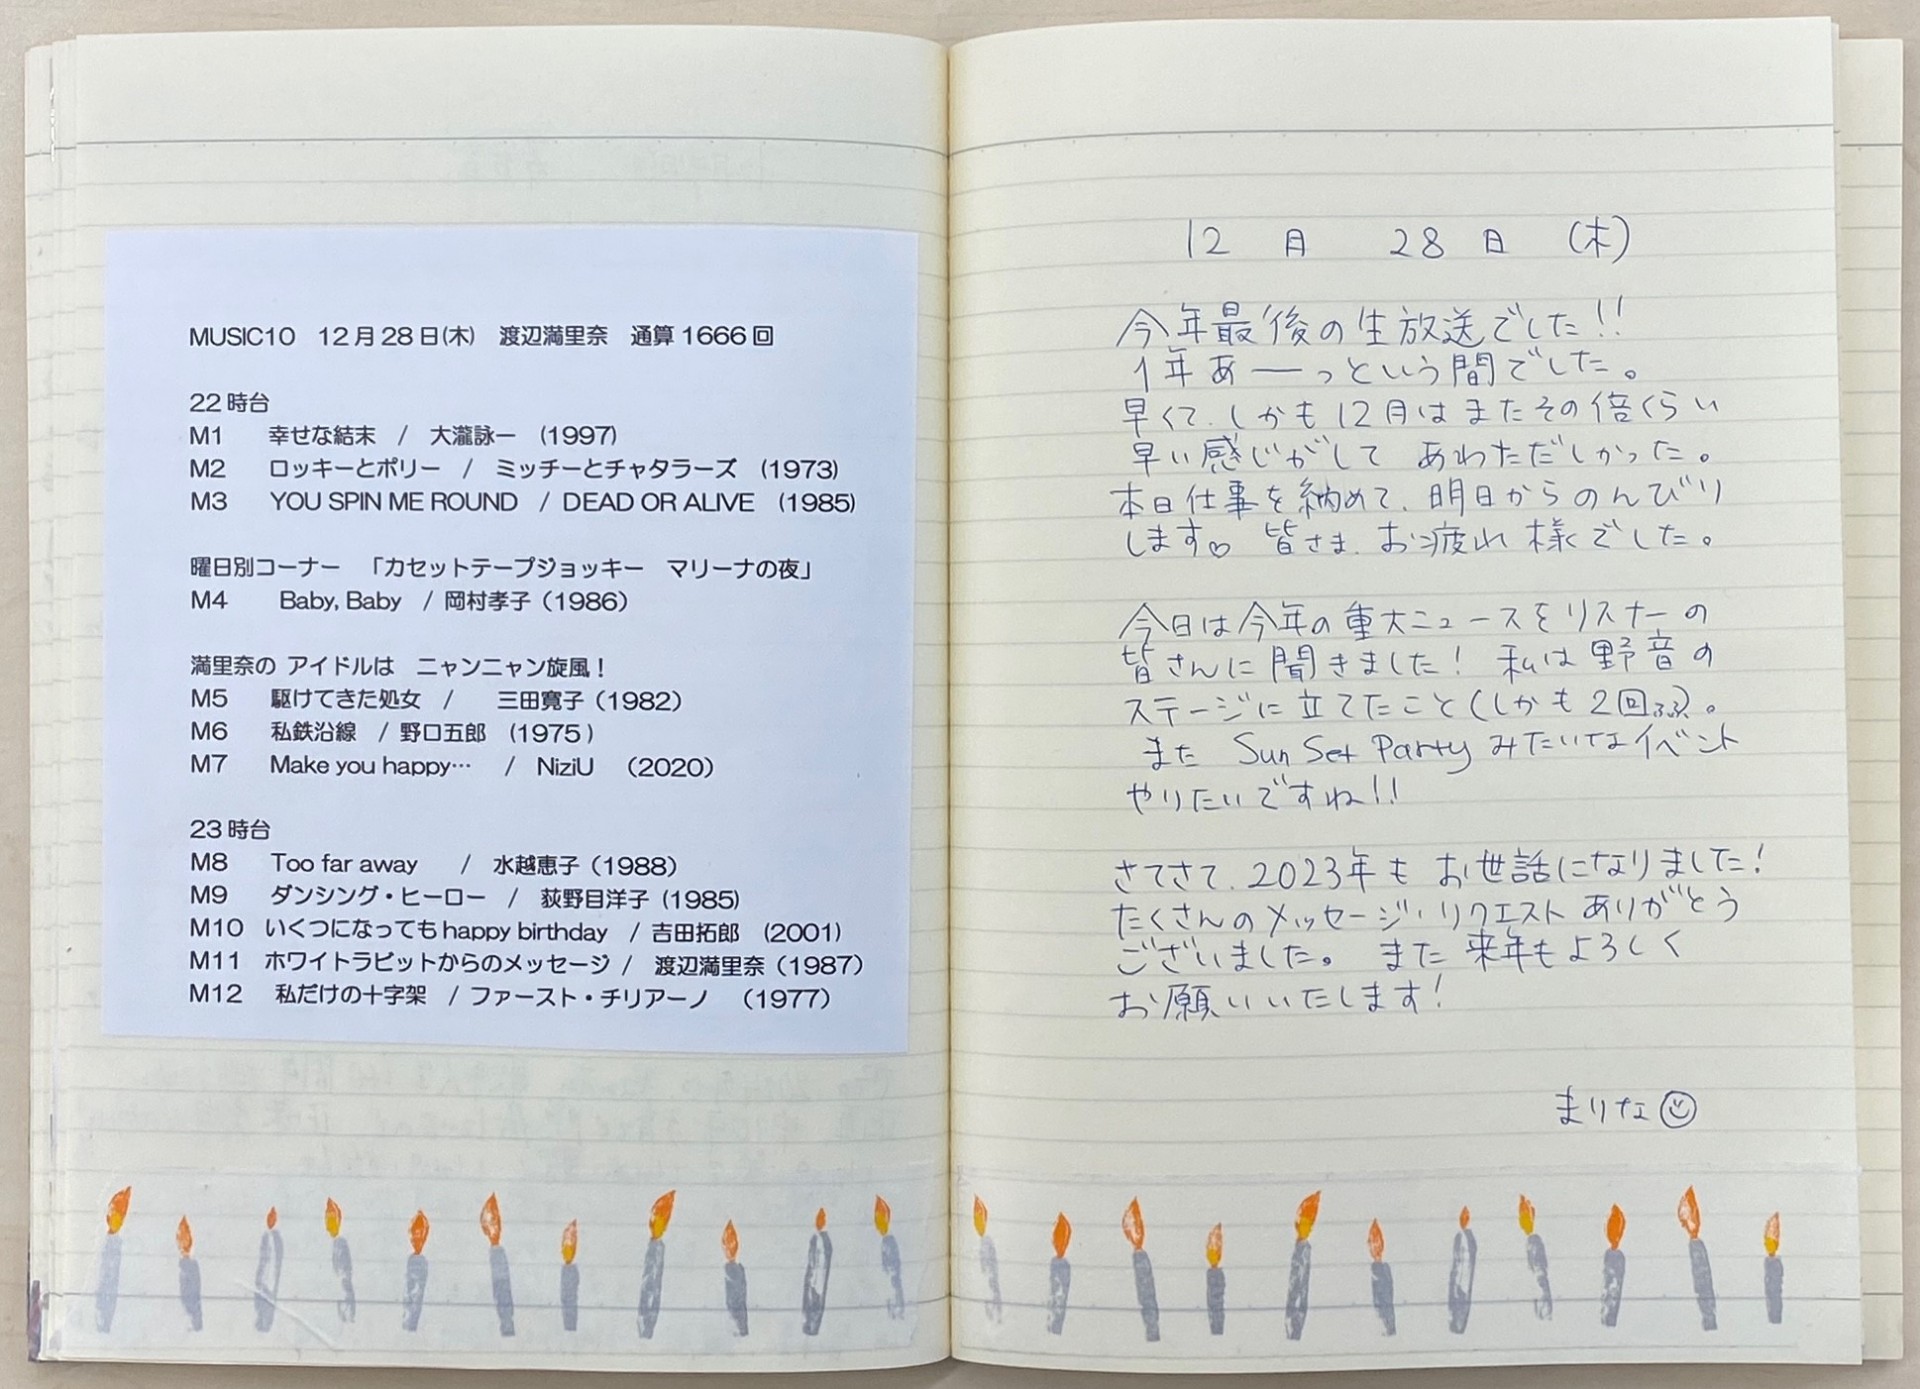 MUSIC10　12月28日(木)　渡辺満里奈　通算1666回
22時台
M1　幸せな結末　/　大瀧詠一　(1997)
M2　ロッキーとポリー　/　ミッチーとチャタラーズ　(1973)
M3　YOU SPIN ME ROUND　/　DEAD OR ALIVE　(1985)
曜日別コーナー　「カセットテープジョッキー　マリーナの夜」
M4　Baby, Baby　/ 岡村孝子（1986）
満里奈の アイドルは　ニャンニャン旋風！
M5　駆けてきた処女　/　三田寛子（1982）
M6　私鉄沿線　/ 野口五郎　(1975)
M7　Make you happy…　/　NiziU　（2020）
23時台
M8　Too far away　/　水越恵子（1988）
M9　ダンシング・ヒーロー　/　荻野目洋子 (1985)
M10　いくつになってもhappy birthday　/ 吉田拓郎　(2001)
M11　ホワイトラビットからのメッセージ /　渡辺満里奈（1987）
M12　私だけの十字架　/ ファースト・チリアーノ　（1977）
12月　28日　(木)
今年最後の生放送でした!!
1年あーーっという間でした。
早くて、しかも12月はまたその倍くらい
早い感じがして あわただしかった。
本日仕事を納めて、明日からのんびり
します♡ 皆さま、お疲れ様でした。
今日は今年の重大ニュースをリスナーの
皆さんに聞きました! 私は野音の
ステージに立てたこと(しかも2回ふふ)。
また Sun Set Party みたいなイベント
やりたいですね!!
さてさて、2023年も お世話になりました!
たくさんのメッセージ・リクエスト ありがとう
ございました。 また 来年もよろしく
お願いいたします!
まりな☺